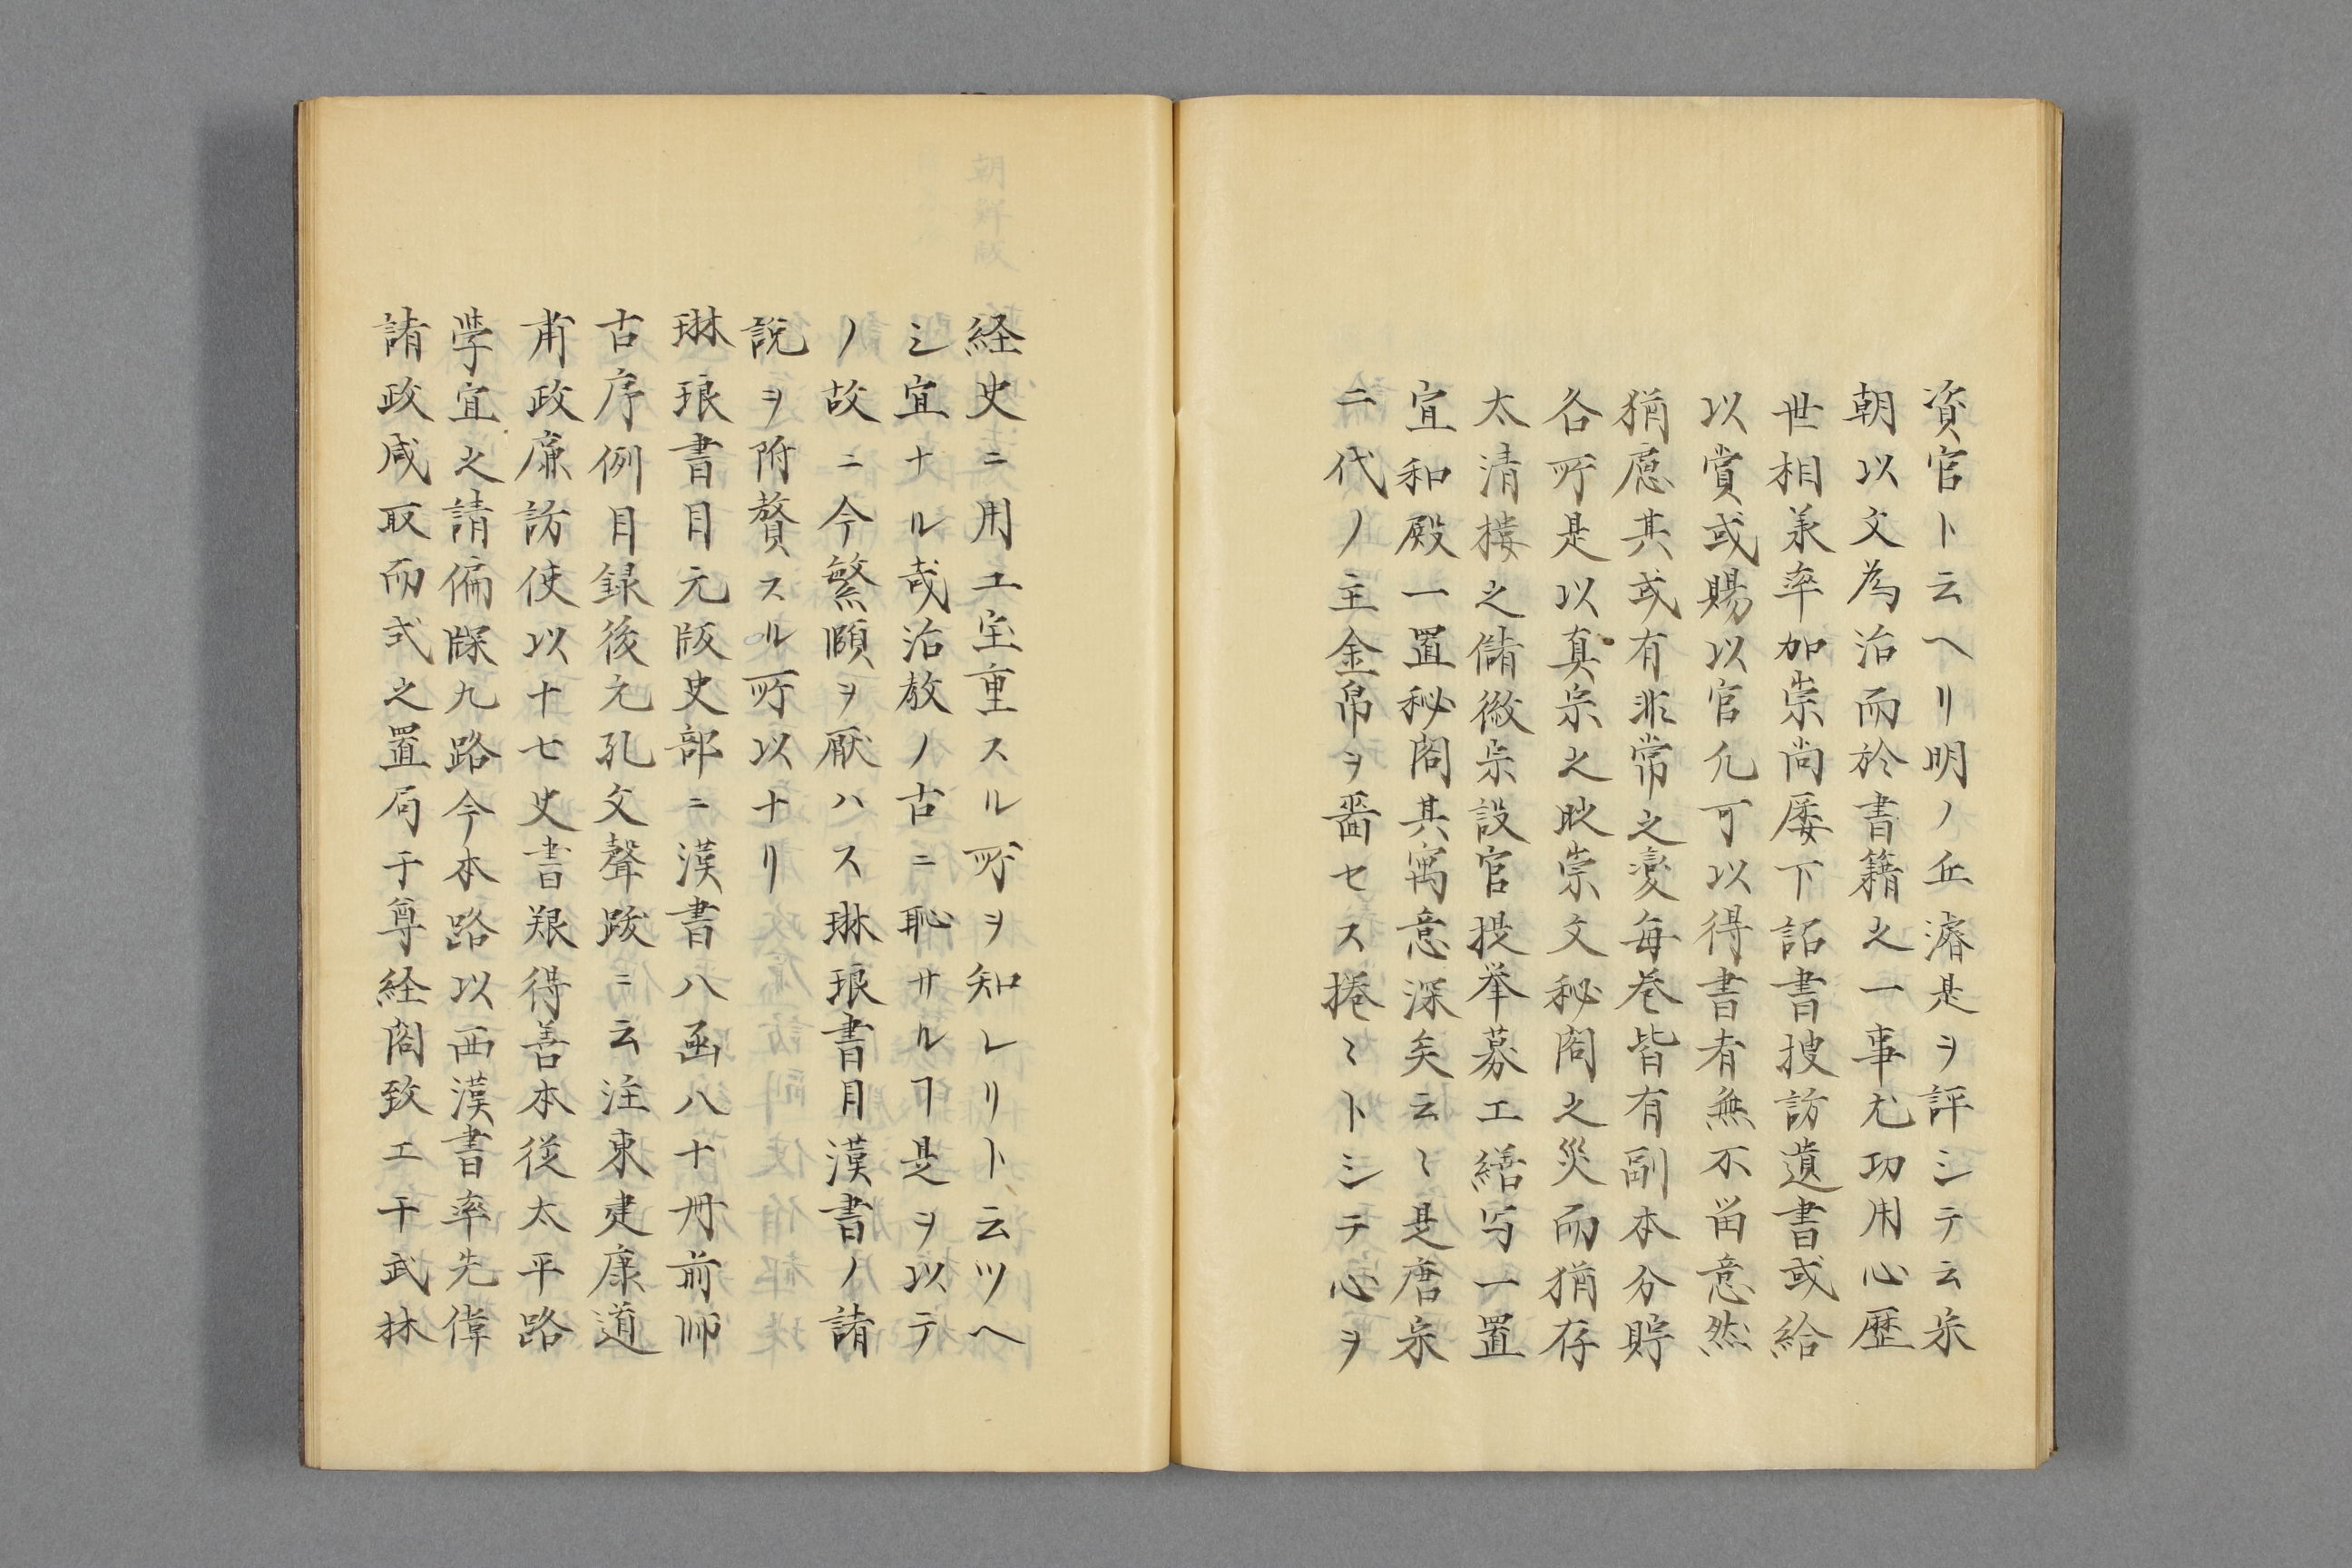 資官ト云ヘリ明ノ丘濬是ヲ評シテ云宋
朝以文為治而於書籍之一事尤功用心歴
世相承率加崇尚屡下詔書捜訪遺書或給
以賞或賜以官凢可以得書者無不畄意然
猶慮其或有非常之変毎巻皆有副本分貯
各所是以真宗之时崇文秘閣之災而猶存
太清楼之儲徽宗設官提挙募工繕写一置
宣和殿一置秘閣其寓意深矣云〻是唐宋
二代ノ主金帛ヲ嗇セス捲〻トシテ心ヲ
経史ニ用エ宝重スル所ヲ知レリト云ツヘ
シ宜ナル哉治教ノ古ニ恥サルヿ是ヲ以テ
ノ故ニ今繁頤ヲ厭ハス琳琅書目漢書ノ諸
説ヲ附贅スル所以ナリ
琳琅書目元版史部ニ漢書八函八十冊前師
古序例目録後元孔文聲跋ニ云注東建康道
粛政廉訪使以十七史書艱得善本従太平路
学官之請徧牒九路今本路以西漢書率先俾
諸政咸取而式之置局于尊経閣致工于武林